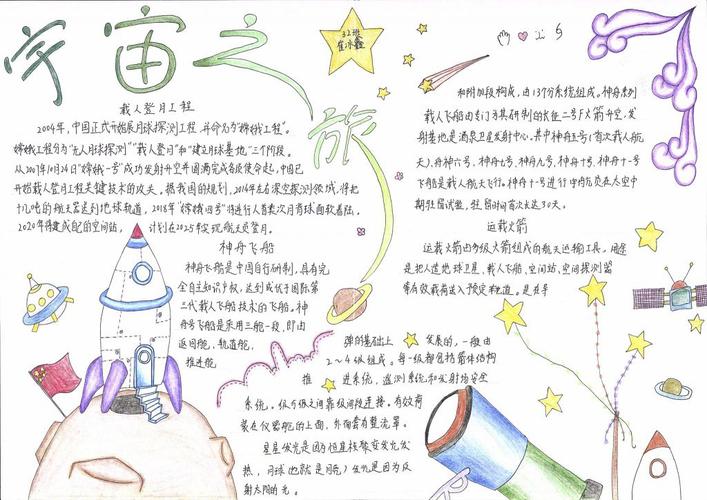 宇宙之旅
32班
崔冰鑫
载人登月工程
2004年,中国正式开始展月球探测工程,并命名为"嫦娥工程"。
嫦娥工程分为"无人月球探测""载人登月"和"建立月球基地"三个阶段。
从2007年10月24日"嫦娥一号"成功发射升空并圆满完成各段使命起,中国已
开始载人登月工程关键技术的攻关。据我国的规划,2016年左右深空探测领域,将把
十几吨的航天器送到地球轨道,2018年"嫦娥四号"将进行人类首次月背球面软着陆。
2020年将建成配的空间站,计划在2025年实现航天员登月。
神舟飞船
神舟飞船是中国自行研制,具有完
全自主知识产权,达到或优于国际第
三代载人飞船技术的飞船。神
舟号飞船是采用三舱一段,即由
返回舱,轨道舱,
推进舱
和附加段构成,由13个分系统组成。神舟系列
载人飞船由专门为其研制的长征二号F火箭升空,发
射基地是酒泉卫星发射中心。其中神舟五号(首次载人航
天),神舟六号,神舟七号,神舟九号,神舟十号,神舟十一号
飞船是载人航天飞行。神舟十一号进行中舟员在太空中
期驻留试验,驻留时间首次长达30天。
运载火箭
运载火箭由多级火箭组成的航天运输工具。用途
是把人造地球卫星、载人飞船、空间站、空间探测器
等有效载荷送入预定轨道。是在导
弹的基础上发展的,一般由
2~4级组成。每一级都包括箭体结构
推进系统,遥测系统和发射场安全
系统。级与级之间靠级间段连接。有效荷
装在仪器舱的上面,外面套有整流罩。
星星发光是因为恒星核聚变发光发
热,月球(也就是月亮)发光是因为反
射太阳的光。